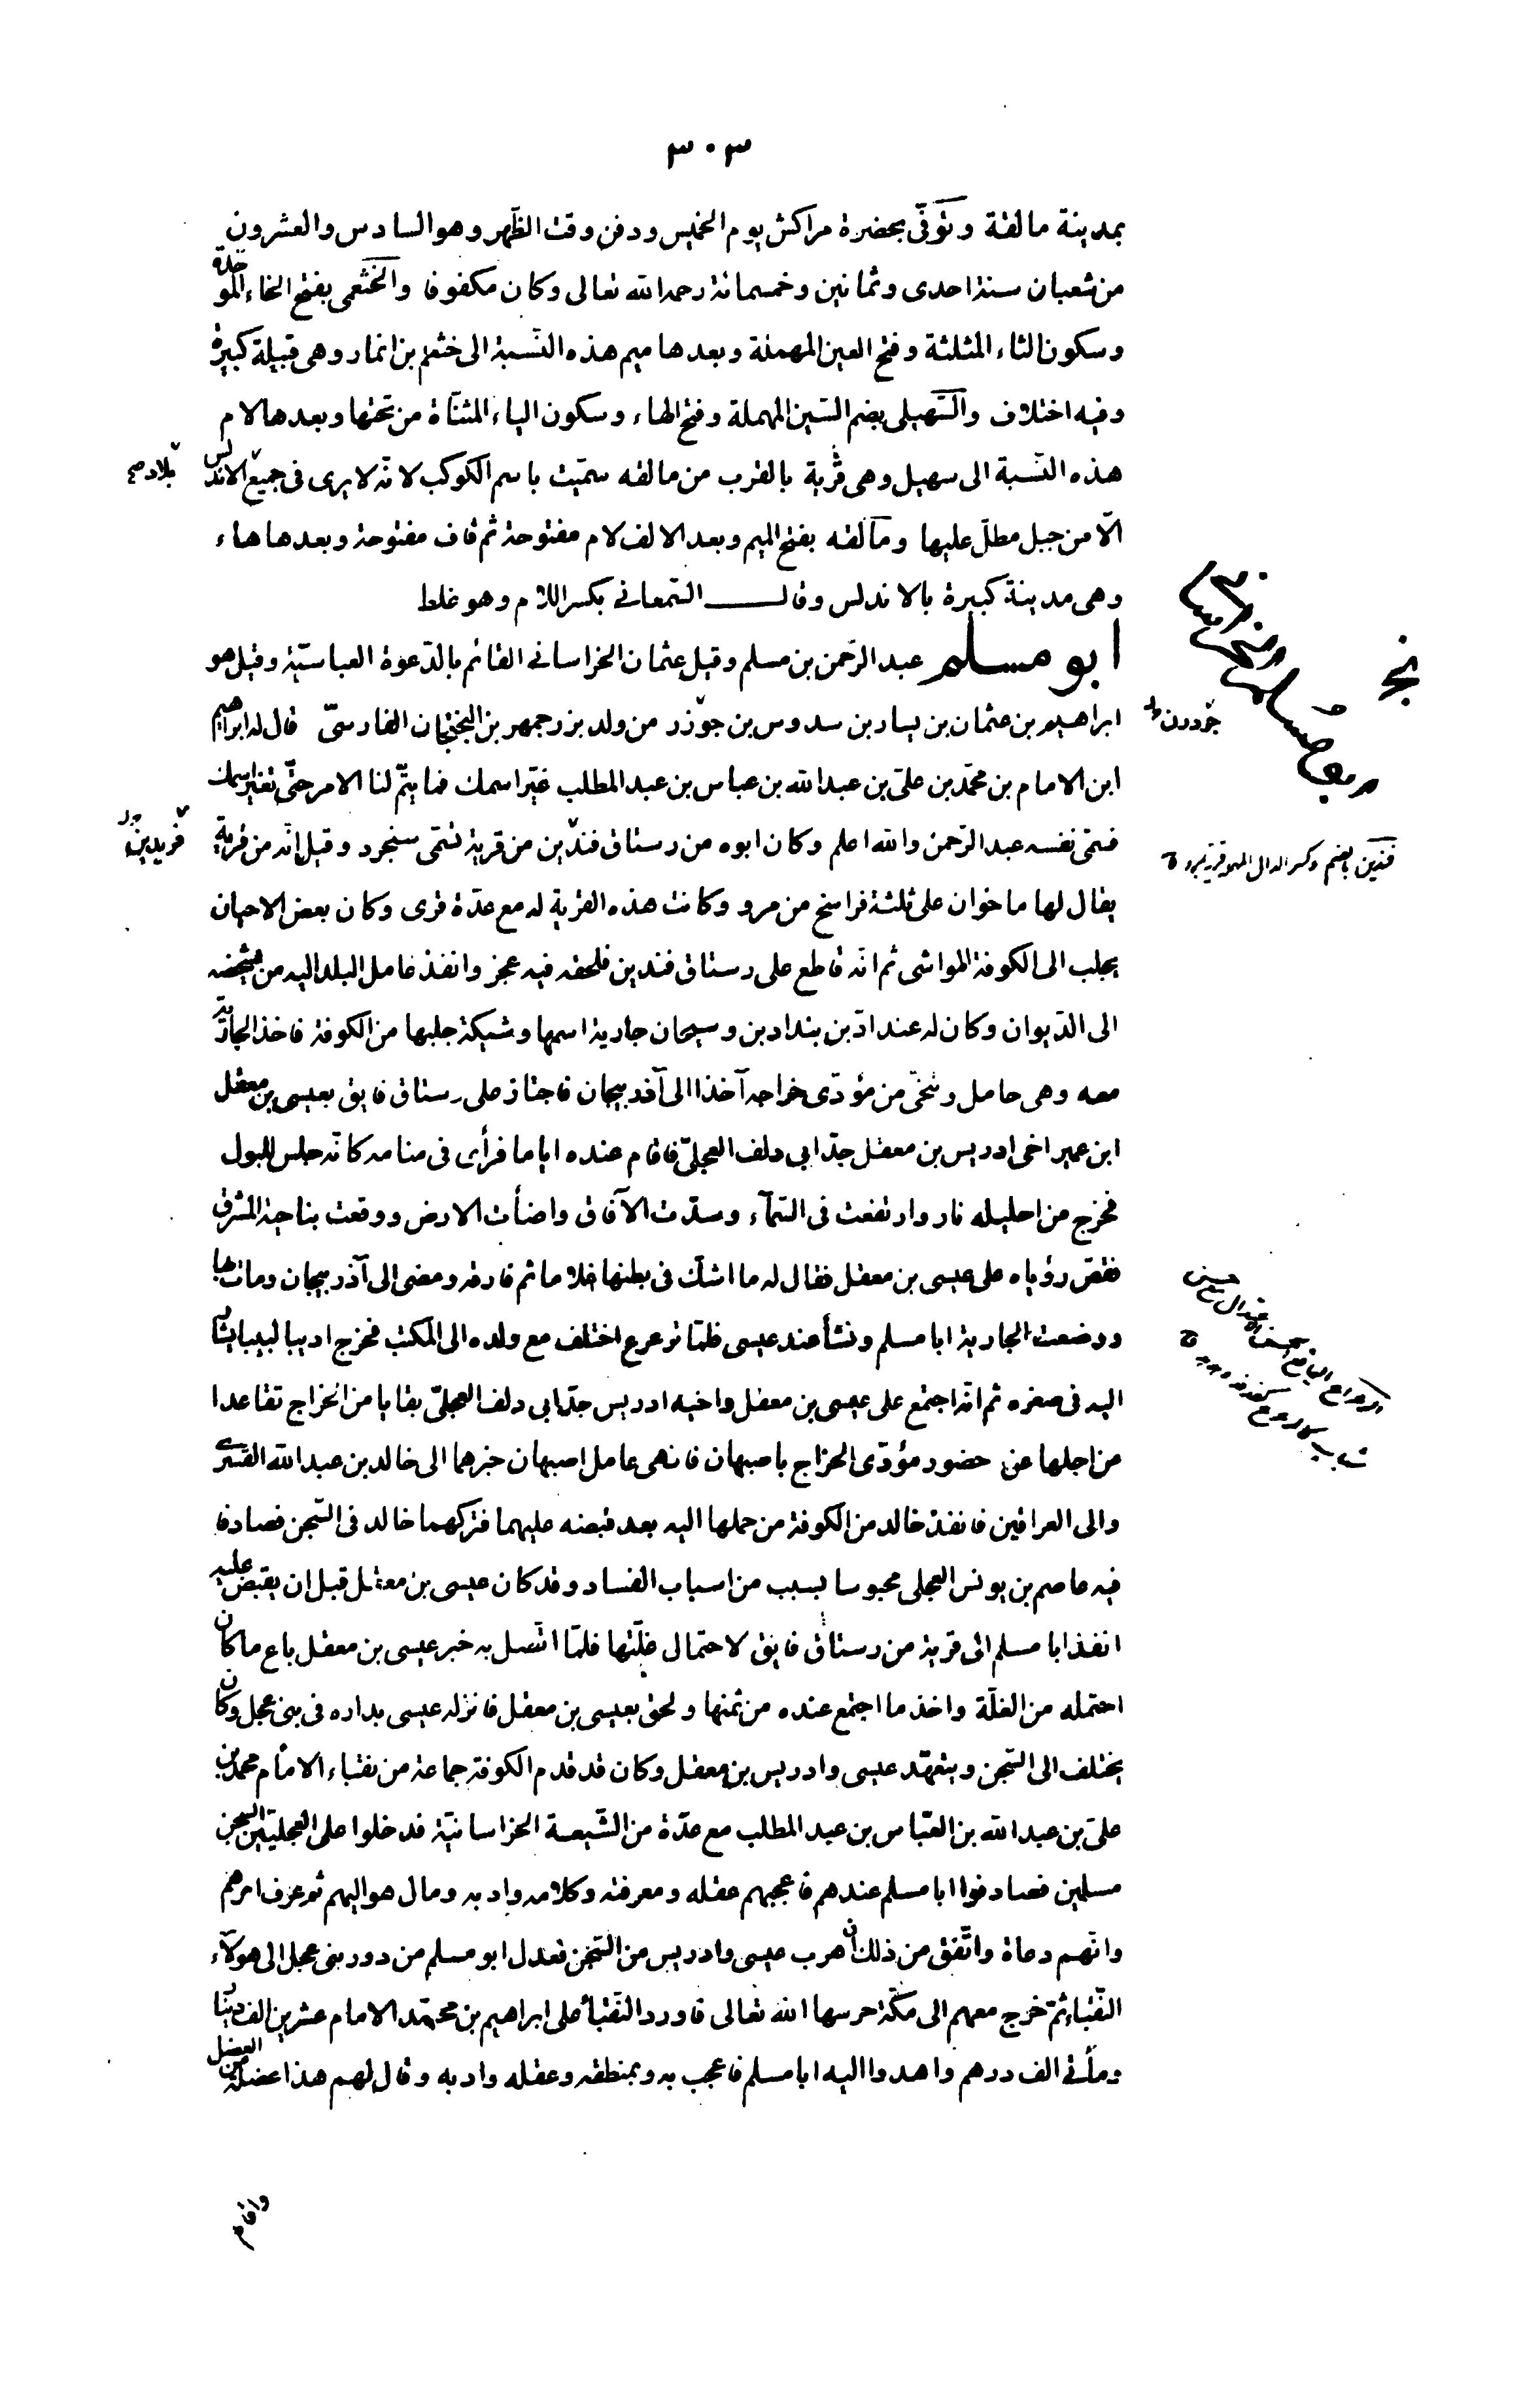 ٣٠٣
بمدينة مالقة وتوفّى بحضرة مراكش يوم الخميس ودفن وقت الظّهر وهو السادس والعشرون
من شعبان سنة احدى وثمانين وخمسمائة رحمه الله تعالى وكان مكفوفا والخثعمى بفتح الخاء الموحّدة
وسكون الثاء المثلثة وفتح العين المهملة وبعدها ميم هذه النّسبة الى خثعم بن انمار وهى قبيلة كبيرة
وفيه اختلاف والسّهيلى بضم السّين المهملة وفتح الهاء وسكون الياء المثنّاة من تحتها وبعدها لام
هذه النّسبة الى سهيل وهى قرية بالقرب من مالقه سمّيت باسم الكوكب لانّه لا يرى فى جميع الاندلس
بلاد صح
الّا من جبل مطلّ عليها ومالقه بفتح الميم وبعد الالف لام مفتوحة ثم قاف مفتوحة وبعدها هاء
وهى مدينة كبيرة بالاندلس وقال السّمعانى بكسر اللام وهو غلط
ابو مسلم عبد الرّحمن بن مسلم وقيل عثمان الخراسانى القائم بالدّعوة العباسيّة وقيل هو
ابراهيم بن عثمان بن يسار بن سدوس بن جوزر من ولد بزرجمهر بن البختكان الفارسىّ قال له ابراهيم
جودرن
ابن الامام بن محمّد بن علىّ بن عبد الله بن عباس بن عبد المطلب غيّر اسمك فما يتمّ لنا الامر حتّى تغيّر اسمك
فسمّى نفسه عبد الرّحمن والله اعلم وكان ابوه من رستاق فندين من قرية تسمّى سنجرد وقيل انّه من قرية
فريدين
فندين بالضم وكسر الدال المهملة قرية بمرو
يقال لها ماخوان على ثلثة فراسخ من مرو وكانت هذه القرية له مع عدّة قرى وكان بعض الاحيان
يجلب الى الكوفة المواشى ثم انّه قاطع على رستاق فندين فلحقه فيه عجز وانفذ عامل البلد اليه من يشخصه
الى الدّيوان وكان له عند ادّبن بنداد بن وسيحان جارية اسمها وشيكة جلبها من الكوفة فاخذ الجارية
معه وهى حامل وتنحّى من مؤدّى خراجه آخذا الى آذربيجان فاجتاز على رستاق فايق بعيسى بن معقل
ابن عمير اخى ادريس بن معقل جدّ ابى دلف العجلىّ فاقام عنده اياما فرأى فى منامه كانّه جلس للبول
فخرج من احليله نار وارتفعت فى السّمآء وسدّت الآفاق واضأت الارض ووقعت بناحية المشرق
فقصّ رؤياه على عيسى بن معقل فقال له ما اشكّ فى بطنها غلاما ثم فارقه ومضى الى آذربيجان ومات بها
ووضعت الجارية ابا مسلم ونشأ عند عيسى فلمّا ترعرع اختلف مع ولده الى المكتب فخرج اديبا لبيبا يشار
اليه فى صغره ثم انّه اجتمع على عيسى بن معقل واخيه ادريس جدّ ابى دلف العجلىّ بقايا من الخراج تقاعدا
من اجلها عن حضور مؤدّى الخراج باصبهان فانهى عامل اصبهان خبرهما الى خالد بن عبد الله القسرى
والى العراقين فانفذ خالد من الكوفة من حملها اليه بعد قبضه عليهما فتركهما خالد فى السّجن فصادفا
فيه عاصم بن يونس العجلى محبوسا بسبب من اسباب الفساد وقد كان عيسى بن معقل قبل ان يقبض عليه
انفذ ابا مسلم الى قرية من رستاق فايق لاحتمال غلّتها فلمّا اتّصل به خبر عيسى بن معقل باع ما كان
احتمله من الغلّة واخذ ما اجتمع عنده من ثمنها ولحق بعيسى بن معقل فانزله عيسى بداره فى بنى عجل وكان
يختلف الى السّجن ويتعهّد عيسى وادريس بن معقل وكان قد قدم الكوفة جماعة من نقباء الامام محمد بن
علىّ بن عبد الله بن العبّاس بن عبد المطلب مع عدّة من الشّيعة الخراسانيّة فدخلوا على العجليّين السجن
مسلمين فصادفوا ابا مسلم عندهم فاعجبهم عقله ومعرفته وكلامه وادبه ومال هو اليهم ثم عرف امرهم
وانّهم دعاة واتّفق من ذلك ان هرب عيسى وادريس من السّجن فعدل ابو مسلم من دور بنى عجل الى هولآء
النّقباء ثمّ خرج معهم الى مكّة حرسها الله تعالى فاورد النقبأ على ابراهيم بن محمّد الامام عشرين الف دينار
ومأتى الف درهم واهدوا اليه ابا مسلم فاعجب به وبمنطقه وعقله وادبه وقال لهم هذا عضلة من العضل
واقام